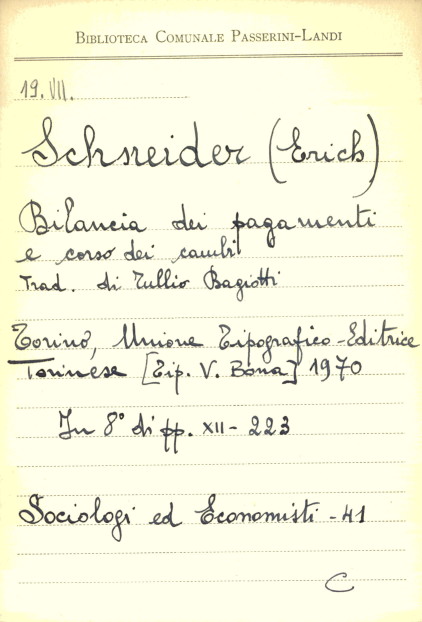 BIBLIOTECA COMUNALE PASSERINI-LANDI
19. VII.
Schneider (Erich)
Bilancia dei pagamenti
e corso dei cambi
Trad. di Tullio Bagiotti
Torino, Unione Tipografico-Editrice
Torinese [Tip. V. Bona] 1970
In 8° di pp. XII - 223
Sociologi ed Economisti - 41
C